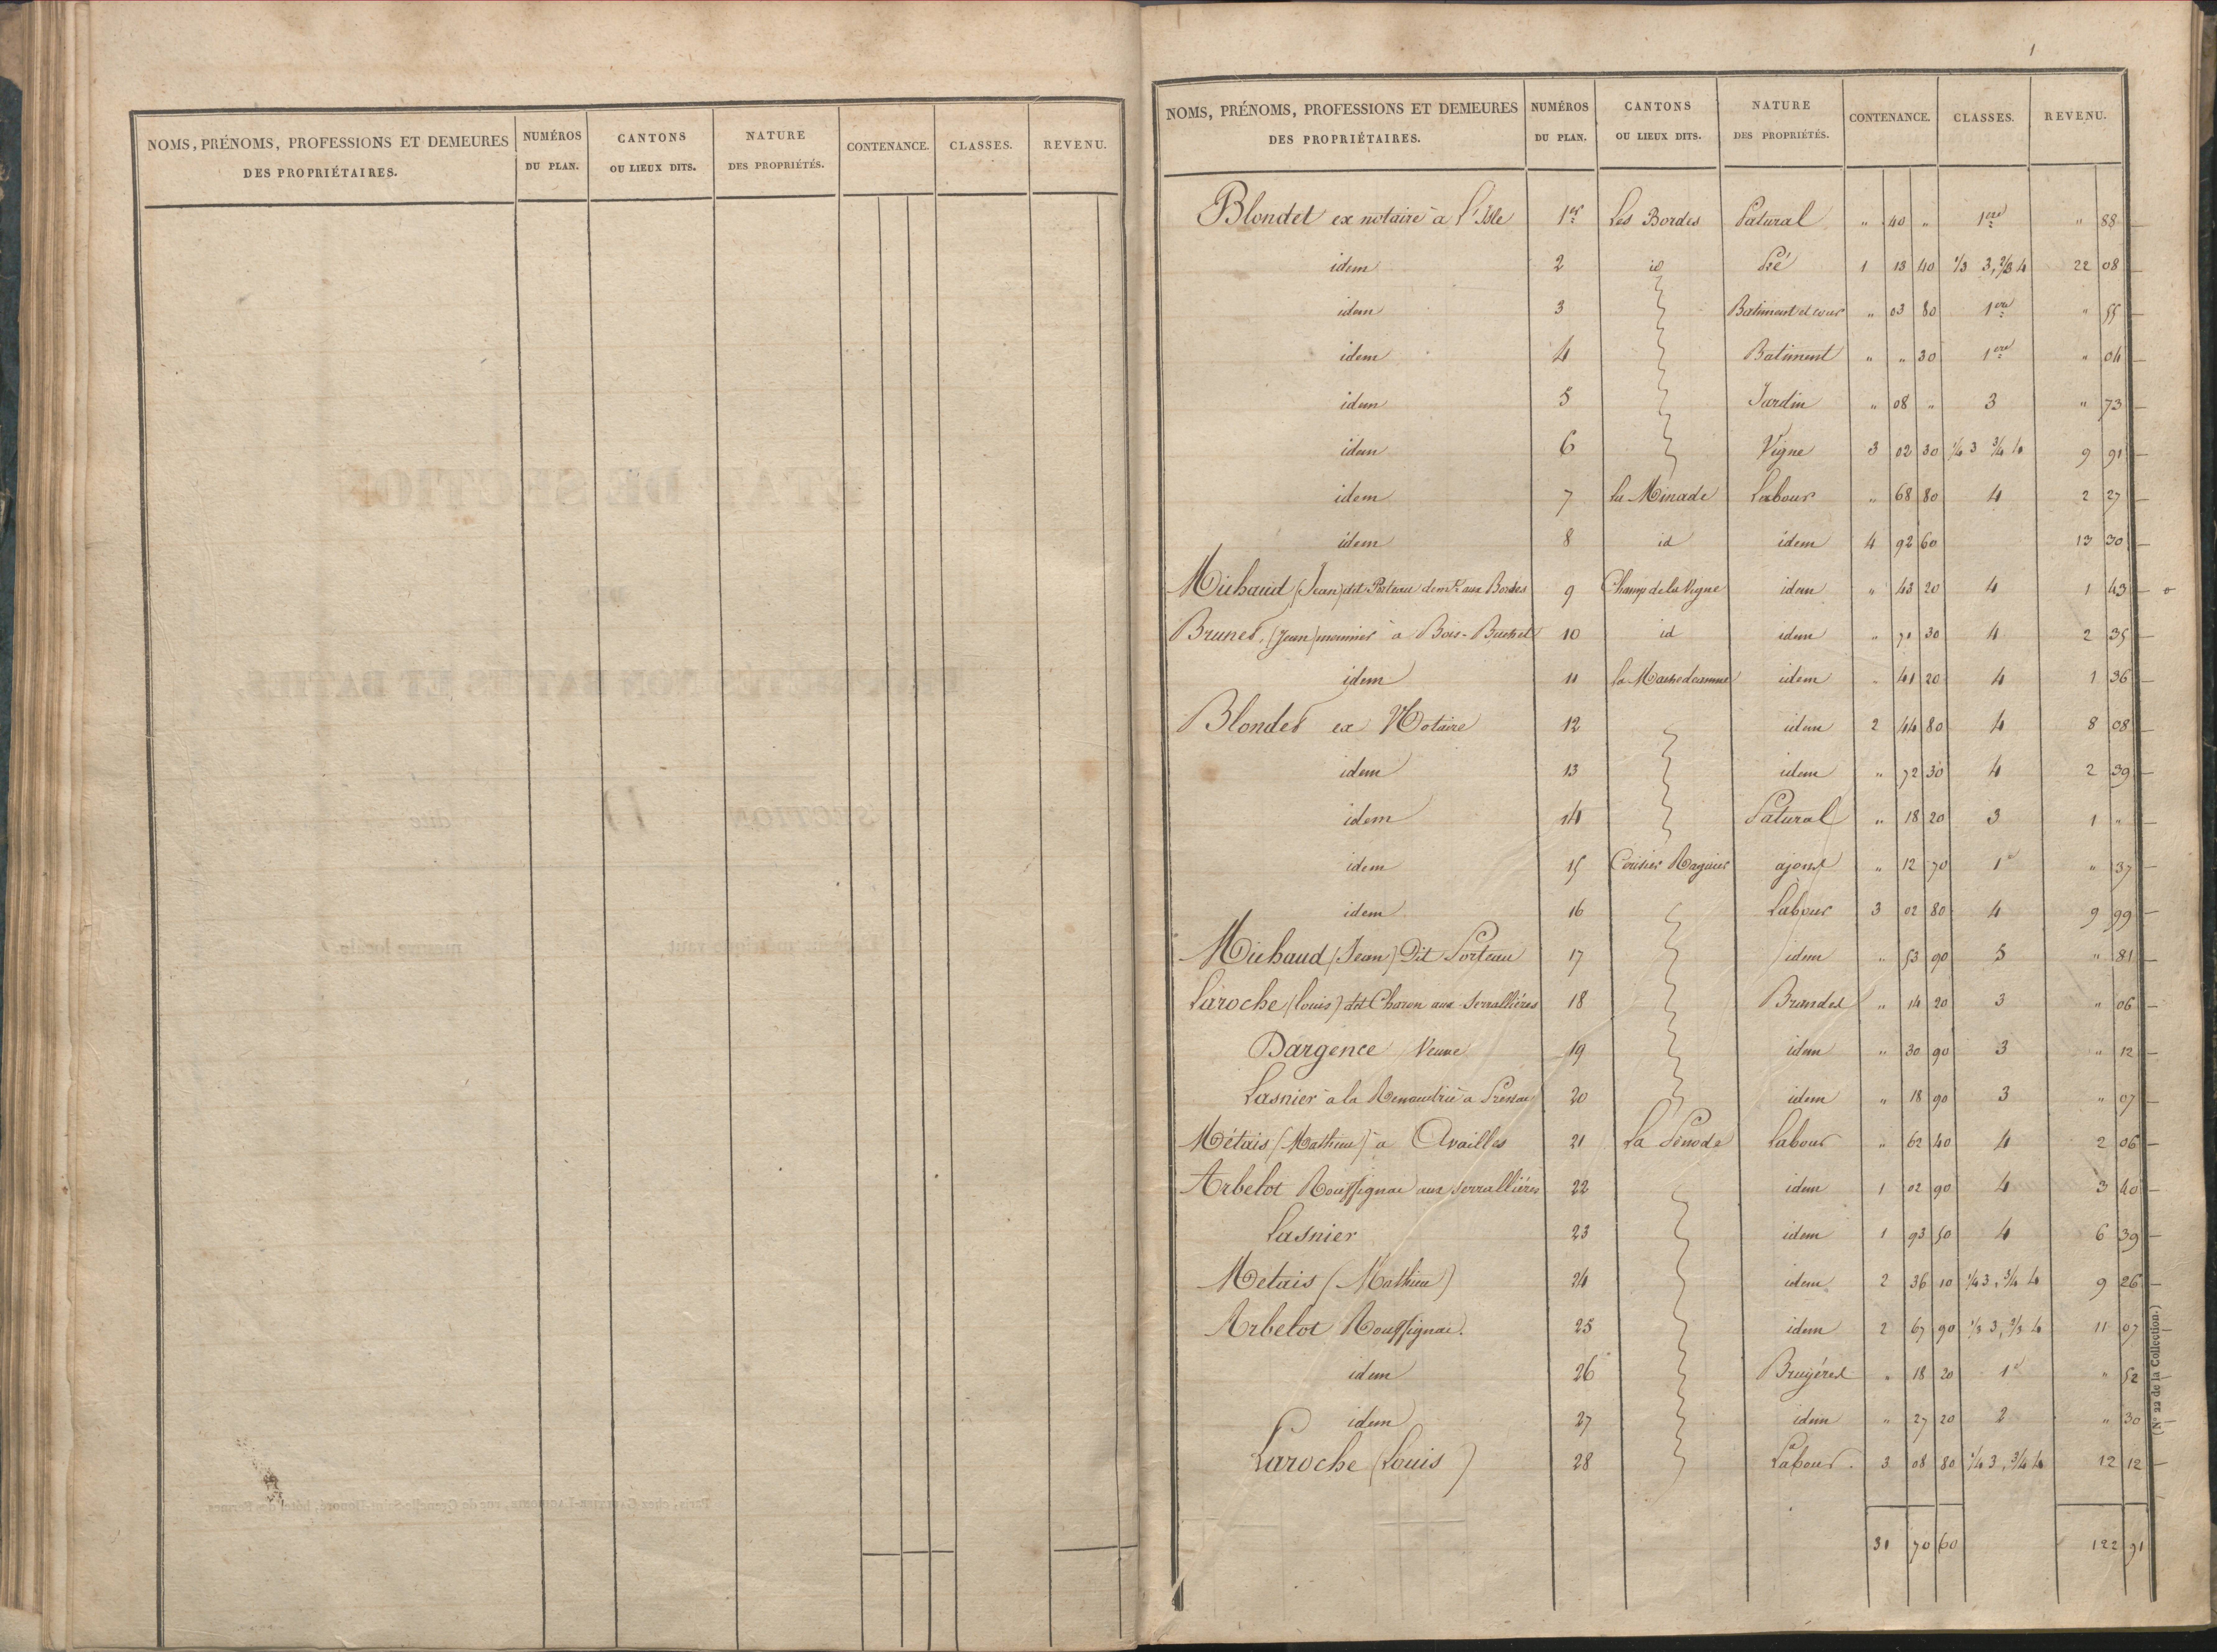 NOMS, PRÉNOMS, PROFESSIONS ET DEMEURES DES PROPRIÉTAIRES. NUMÉROS DU PLAN. CANTONS OU LIEUX DITS. NATURE DES PROPRIÉTÉS. CONTENANCE. CLASSES. REVENU.
1
NOMS, PRÉNOMS, PROFESSIONS ET DEMEURES DES PROPRIÉTAIRES. NUMÉROS DU PLAN. CANTONS OU LIEUX DITS. NATURE DES PROPRIÉTÉS. CONTENANCE. CLASSES. REVENU.
Blondet ex notaire à l'Isle 1er Les Bordes Patural " 40 " 1ere " 88
idem 2 id Pré 1 13 40 1/3 3, 2/3 4 22 08
idem 3 Batiment et cour " 03 80 1ere " 55
idem 4 Batiment " " 30 1ere " 04
idem 5 Jardin " 08 " 3 " 73
idem 6 Vigne 3 02 30 1/4 3 3/4 4 9 91
idem 7 la Minade Labour " 68 80 4 2 27
idem 8 id idem 4 92 60 13 30
Michaud (Jean) dit Porteau demt aux Bordes 9 Champ de la Vigne idem " 43 20 4 1 43
Brunet (Jean) meunier à Bois- 10 id idem " 71 30 4 2 35
idem 11 la idem " 41 20 4 1 36
Blondet ex Notaire 12 idem 2 44 80 4 8 08
idem 13 idem " 72 30 4 2 39
idem 14 Patural " 18 20 3 1 "
idem 15 ajonc " 12 70 1e " 37
idem 16 Labour 3 02 80 4 9 99
Michaud (Jean) Dit Porteau 17 idem " 53 90 5 " 81
Laroche (Louis) dit Charon aux Serrallières 18 Brandes " 14 20 3 " 06
Dargence Veuve 19 idem " 30 90 3 " 12
Lasnier à la Renaudrie à 20 idem " 18 90 3 " 07
Métais (Mathieu) à Availles 21 La Labour " 62 40 4 2 06
Arbelot Rouffignac aux Serrallières 22 idem 1 02 90 4 3 40
Lasnier 23 idem 1 93 50 4 6 39
Metais (Mathieu) 24 idem 2 36 10 1/4 3, 3/4 4 9 26
Arbelot Rouffignac. 25 idem 2 67 90 1/3 3, 2/3 4 11 07
idem 26 Bruyéres " 18 20 1e " 52
idem 27 idem " 27 20 2 " 30
Laroche (Louis) 28 Labour. 3 08 80 1/4 3, 3/4 4 12 12
31 70 60 122 91
(N° 22 de la Collection.)